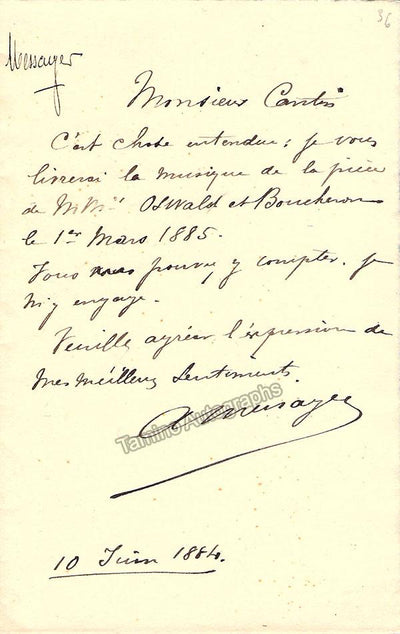 36
Messager
Monsieur Cantin
C'est chose entendue; je vous
livrerai la musique de la pièce
de MM.rs Oswald et Boucheron
le 1er Mars 1885.
Vous pouvez y compter. Je
m'y engage.
Veuillez agréer l'expression de
mes meilleurs sentiments.
A Messager
Tamino Autographs
10 Juin 1884.